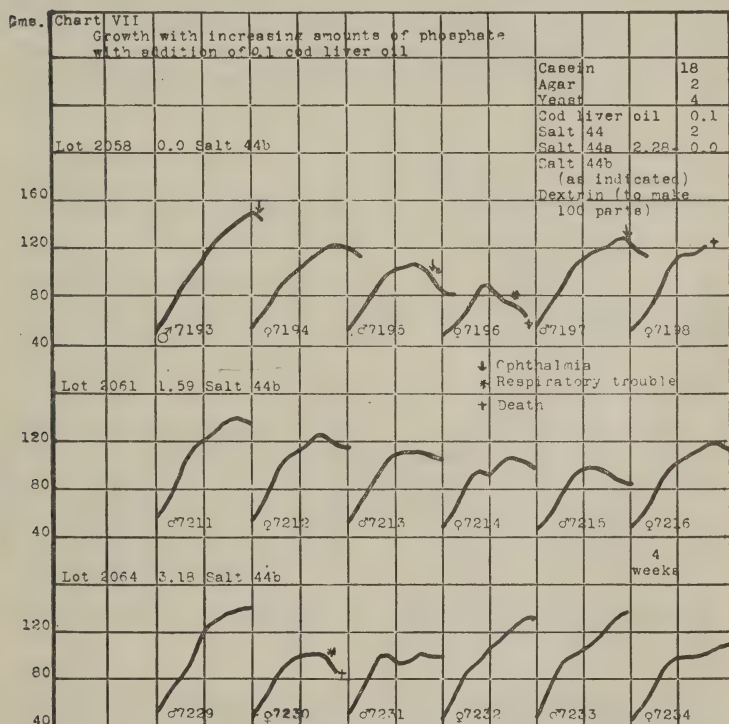 Gms. Chart VII
Growth with increasing amounts of phosphate
with addition of 0.1 cod liver oil
Casein 18
Agar 2
Yeast 4
Cod liver oil 0.1
Salt 44 2
Salt 44a 2.28- 0.0
Salt 44b
(as indicated)
Dextrin (to make
100 parts)
Lot 2058 0.0 Salt 44b
160
120
80
40
♂7193 ♀7194 ♂7195 ♀7196 ♂7197 ♀7198
Ophthalmia
* Respiratory trouble
+ Death
Lot 2061 1.59 Salt 44b
120
80
40
♂7211 ♀7212 ♂7213 ♀7214 ♂7215 ♀7216
4
weeks
Lot 2064 3.18 Salt 44b
120
80
40
♂7229 ♀7230 ♂7231 ♀7232 ♂7233 ♀7234